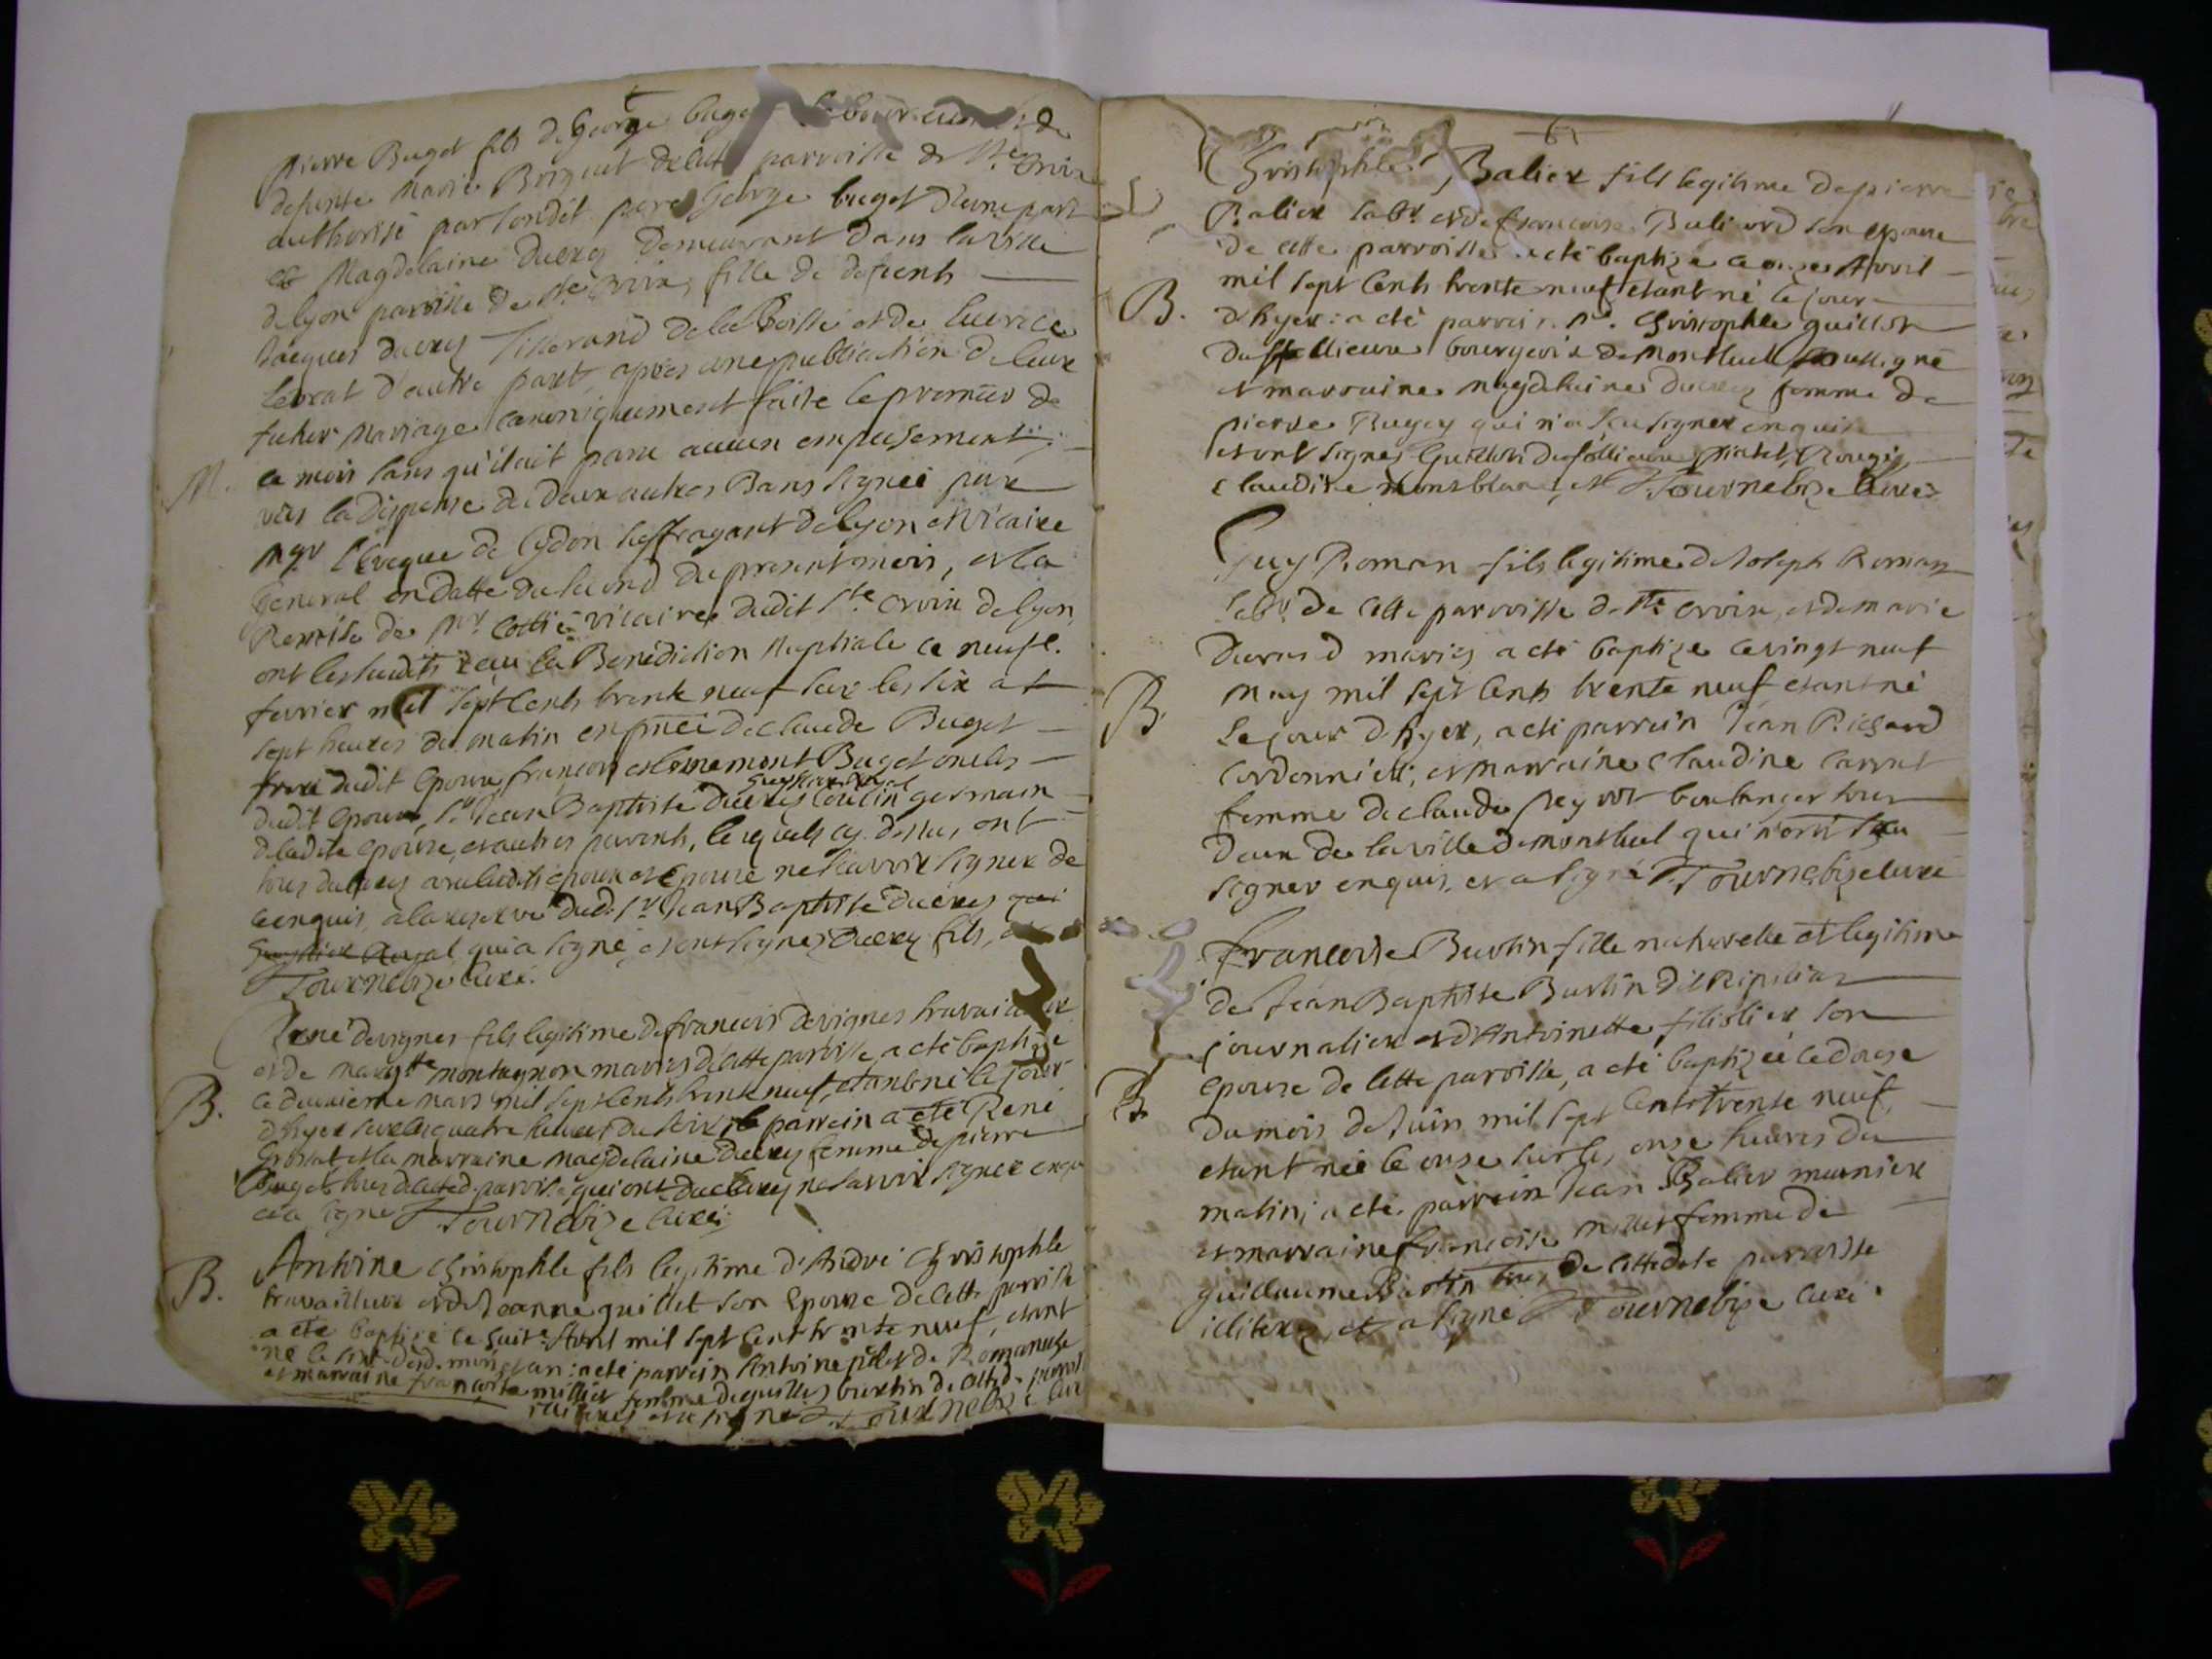 pierre Buget fils de george buget laboureur & de
defunte marie Borgeat de cette parroisse de Ste Croix
authorisé par sondit pere george buget d'une part
et Magdelaine Ducrey demeurant dans la ville
de lyon paroisse de Ste Croix, fille de defunts
Jacques ducrey Tisserand de la Boisse et de lucrece
d'autre part, apres une publication de leur
futur mariage canoniquement faite le premier de
M. ce mois sans qu'il ait paru aucun empechement,
vus la dispense de deux autres Bans signée par
Mgr l'Eveque de Cydon suffragant de lyon et vicaire
General en datte du second du present mois, et la
Remise de Mr vicaire dudit Ste Croix de lyon,
ont les susdits reçu la Benediction Nuptiale ce neufe.
fevrier mil sept cents trente neuf sur les six a
sept heures du matin en pnce de claude Buget
frere dudit Epoux, françois Buget oncles
dudit Epoux, Sr Jean Baptiste Ducrey Cousin germain
de ladite epouse, et autres parents, lesquels cy dessus, ont
tous declarez avec lesdits epoux et Epouse ne scavoir signer de
ce enquis, a la reserve dud. Sr Jean Baptiste Ducrey qui
qui a signé, et ont signez Ducrey fils, et
Tournebize Curé.
René devignes fils legitime de francois devignes travailleur
et de margte montagnon mariés de cette paroisse a eté baptizé
B. ce deuxieme mars mil sept cents trente neuf, etant né le jour
d'hyer sur les quatre heures du soir, le parrein a eté René
et la marraine magdelaine Ducrey femme de pierre
Buget tous de cette d. paroisse qui ont declarez ne scavoir signer enquis
et a signé Tournebize Curé
B. Antoine christophle fils legitime d'André Christophle
travailleur et de Jeanne guillet son Epouse de cette parroisse
a eté baptizé le huit Avril mil sept cent trente neuf, etant
né le sixe dud. mois et an: a eté parrein Antoine de Romaneche
et marraine françoise millet femme de guilles burtin de cette d. parroisse
illiterez et a signé Tournebize Curé
6
Christophle Balier fils legitime de pierre
Balier labr. et de francoise Buliard son epouse
de cette parroisse a eté baptizé ce onze Avril
mil sept cents trente neuf etant né le jour
B. d'hyer: a eté parrein Sr. Christophle guillot
Dufollieux bourgeois de Montluel soussigné
et marraine magdelaine ducrey femme de
pierre Bugey qui n'a sçu signer enquise
et ont signez Guillot Dufollieux, Rougé,
claudine montblanc, et Tournebize Curé
Guy Roman fils legitime de Joseph Roman
labr. de cette parroisse de Ste croix, et de marie
Durand mariez a eté baptizé ce vingt neuf
B. may mil sept cents trente neuf etant né
le jour d'hyer, a eté parrein Jean Richard
cordonnier, et marraine Claudine
femme de claude peyrot boulanger tous
deux de la ville de montluel qui n'ont sceu
signer enquis, et a signé Tournebize curé
Francoise Burtin fille naturelle et legitime
de Jean Baptiste Burtin dit
journalier et d'Antoinette son
epouse de cette paroisse, a eté baptizée ce douze
B. du mois de Juin mil sept cents trente neuf,
etant née le onze sur les onze heures du
matin; a eté parrein Jean Balier meunier
et marraine francoise millet femme de
guillaume Burtin tous de cette dite parroisse
illiterez, et a signé Tournebize Curé.